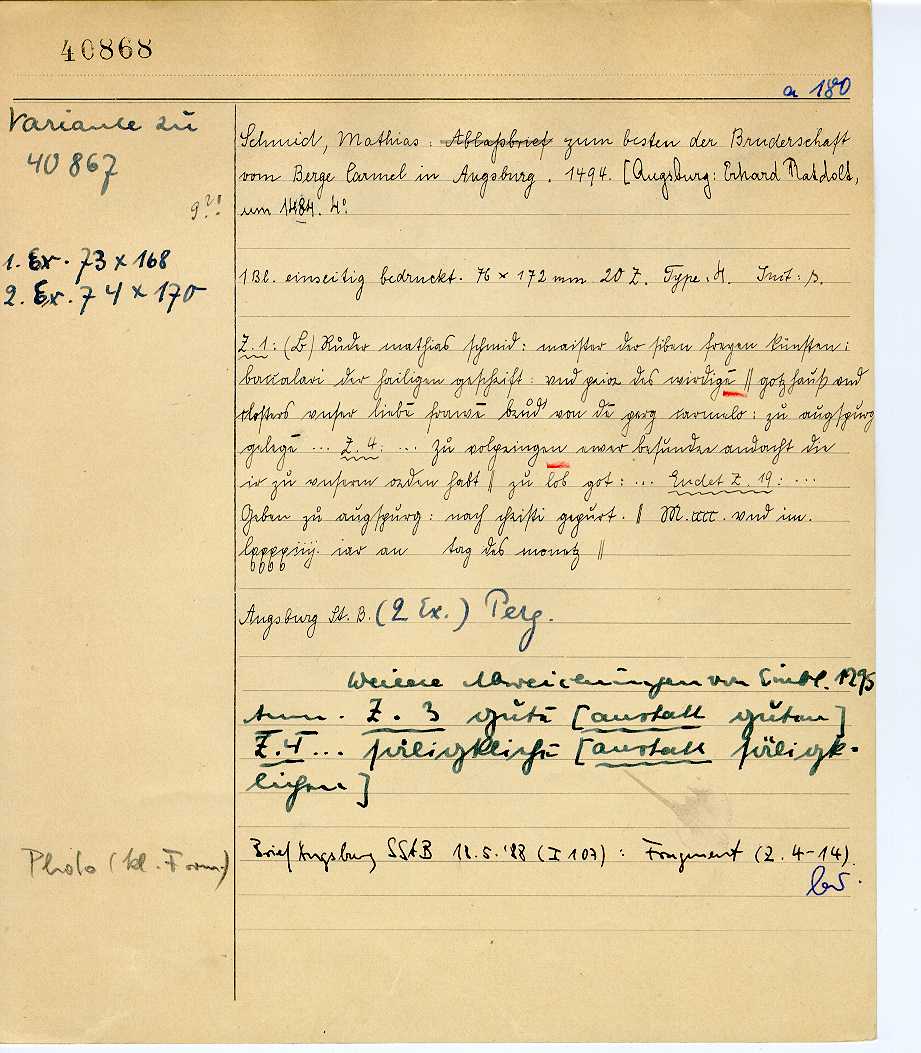 40868
a 180
Variante zu
40867
9?!
1. Ex. 73 x 168
2. Ex. 74 x 170
Schmid, Mathias: Ablaßbrief zum besten der Bruderschaft
vom Berge Carmel in Augsburg. 1494. [Augsburg: Erhard Ratdolt,
um 1484. 4°.
1 Bl. einseitig bedruckt. 76 x 172 mm 20 Z. Type: Init:
Z. 1: (B) Ruder mathias schmid: maister der siben freyen künsten:
baccalari der hailigen geschrift: vnd prior des wirdigē || gotzhauß vnd
closters vnser liebē frawē brud' von dē perg carmelo: zu augspurg
gelegē ... Z. 4: ... zu volpringen ewer besunder andacht die
ir zu vnserm orden habt || zu lob got: ... Endet Z. 19: ...
Geben zu augspurg: nach christi gepurt. || M.cccc. vnd im.
lxxxxiiij. iar an tag des monetz ||
Augsburg St. B. (2 Ex.) Perg.
Weitere Abweichungen von Einbl. 1295
Anm. Z. 3 gutē [anstatt guten]
Z. 4 ... säligklichē [anstatt säligk-
lichen]
Photo (kl. Form.)
Brief Augsburg SStB 18.5.'88 (I 107): Fragment (Z. 4-14).